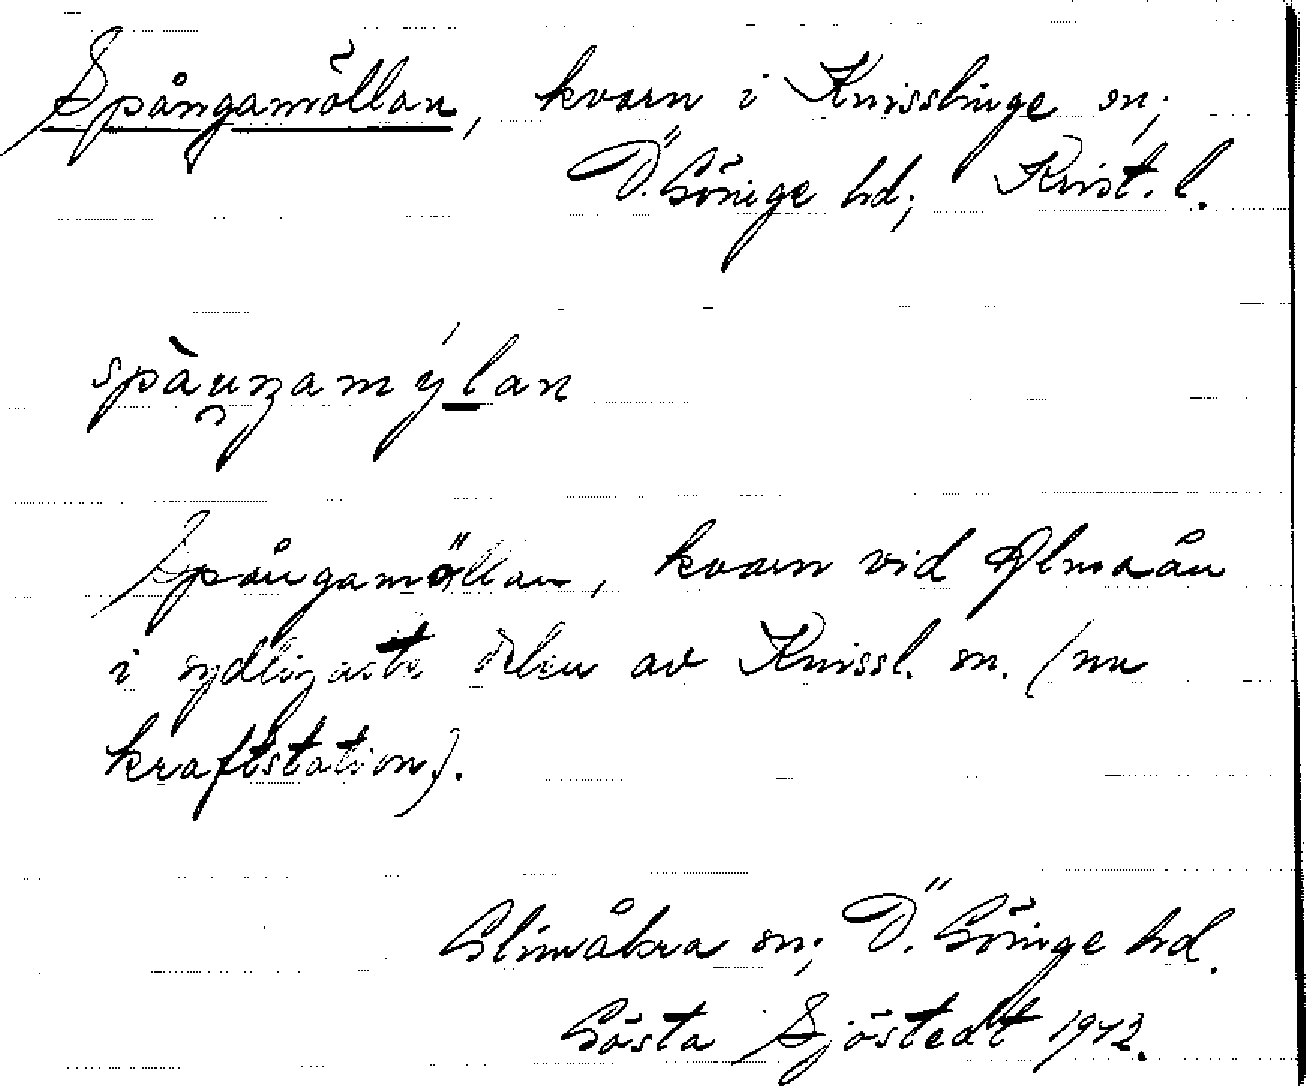 Spångamöllan, kvarn i Knisslinge sn;
Ö. Göinge hd; Krist. l.
spåŋɡamýlan
Spångamöllan, kvarn vid Almaån
i sydligaste delen av Knissl. sn. (nu
kraftstation).
Glimåkra sn; Ö. Göinge hd.
Gösta Sjöstedt 1942.